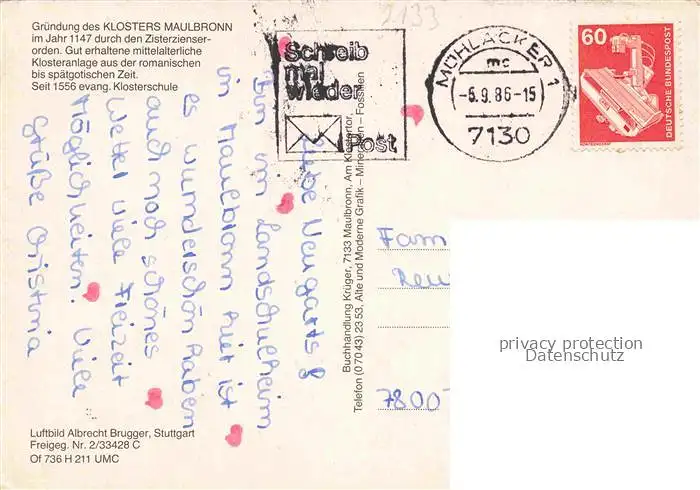 2133
Gründung des KLOSTERS MAULBRONN
im Jahr 1147 durch den Zisterzienser-
orden. Gut erhaltene mittelalterliche
Klosteranlage aus der romanischen
bis spätgotischen Zeit.
Seit 1556 evang. Klosterschule
Schreib
mal
wieder
Post
MÜHLACKER 1
mc
-5.9.86-15
7130
60
DEUTSCHE BUNDESPOST
Liebe Neugarts!
Bin im Landschulheim
in Maulbronn hier ist
es wunderschön haben
auch noch schönes
Wetter viele Freizeit
möglichkeiten. Viele
Grüße Christina
Buchhandlung Krüger, 7133 Maulbronn, Am Klostertor
Telefon (07043) 2353, Alte und Moderne Grafik – Mineralien – Fossilien
Fam
7800
privacy protection
Datenschutz
Luftbild Albrecht Brugger, Stuttgart
Freigeg. Nr. 2/33428 C
Of 736 H 211 UMC